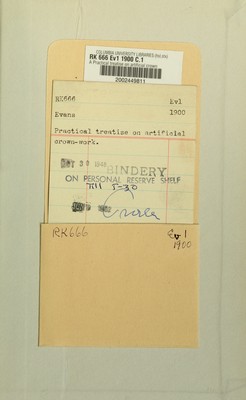 COLUMBIA UNIVERSITY LIBRARIES
RK 666 Ev1 1900 C.1
A Practical treatise on artificial crown
2002449811
RK666 Ev1
Evans 1900
Practical treatise on artificial
crown-work.
30 1948
BINDERY
ON PERSONAL RESERVE SHELF
Till 5-30
RK666 Ev1
1900